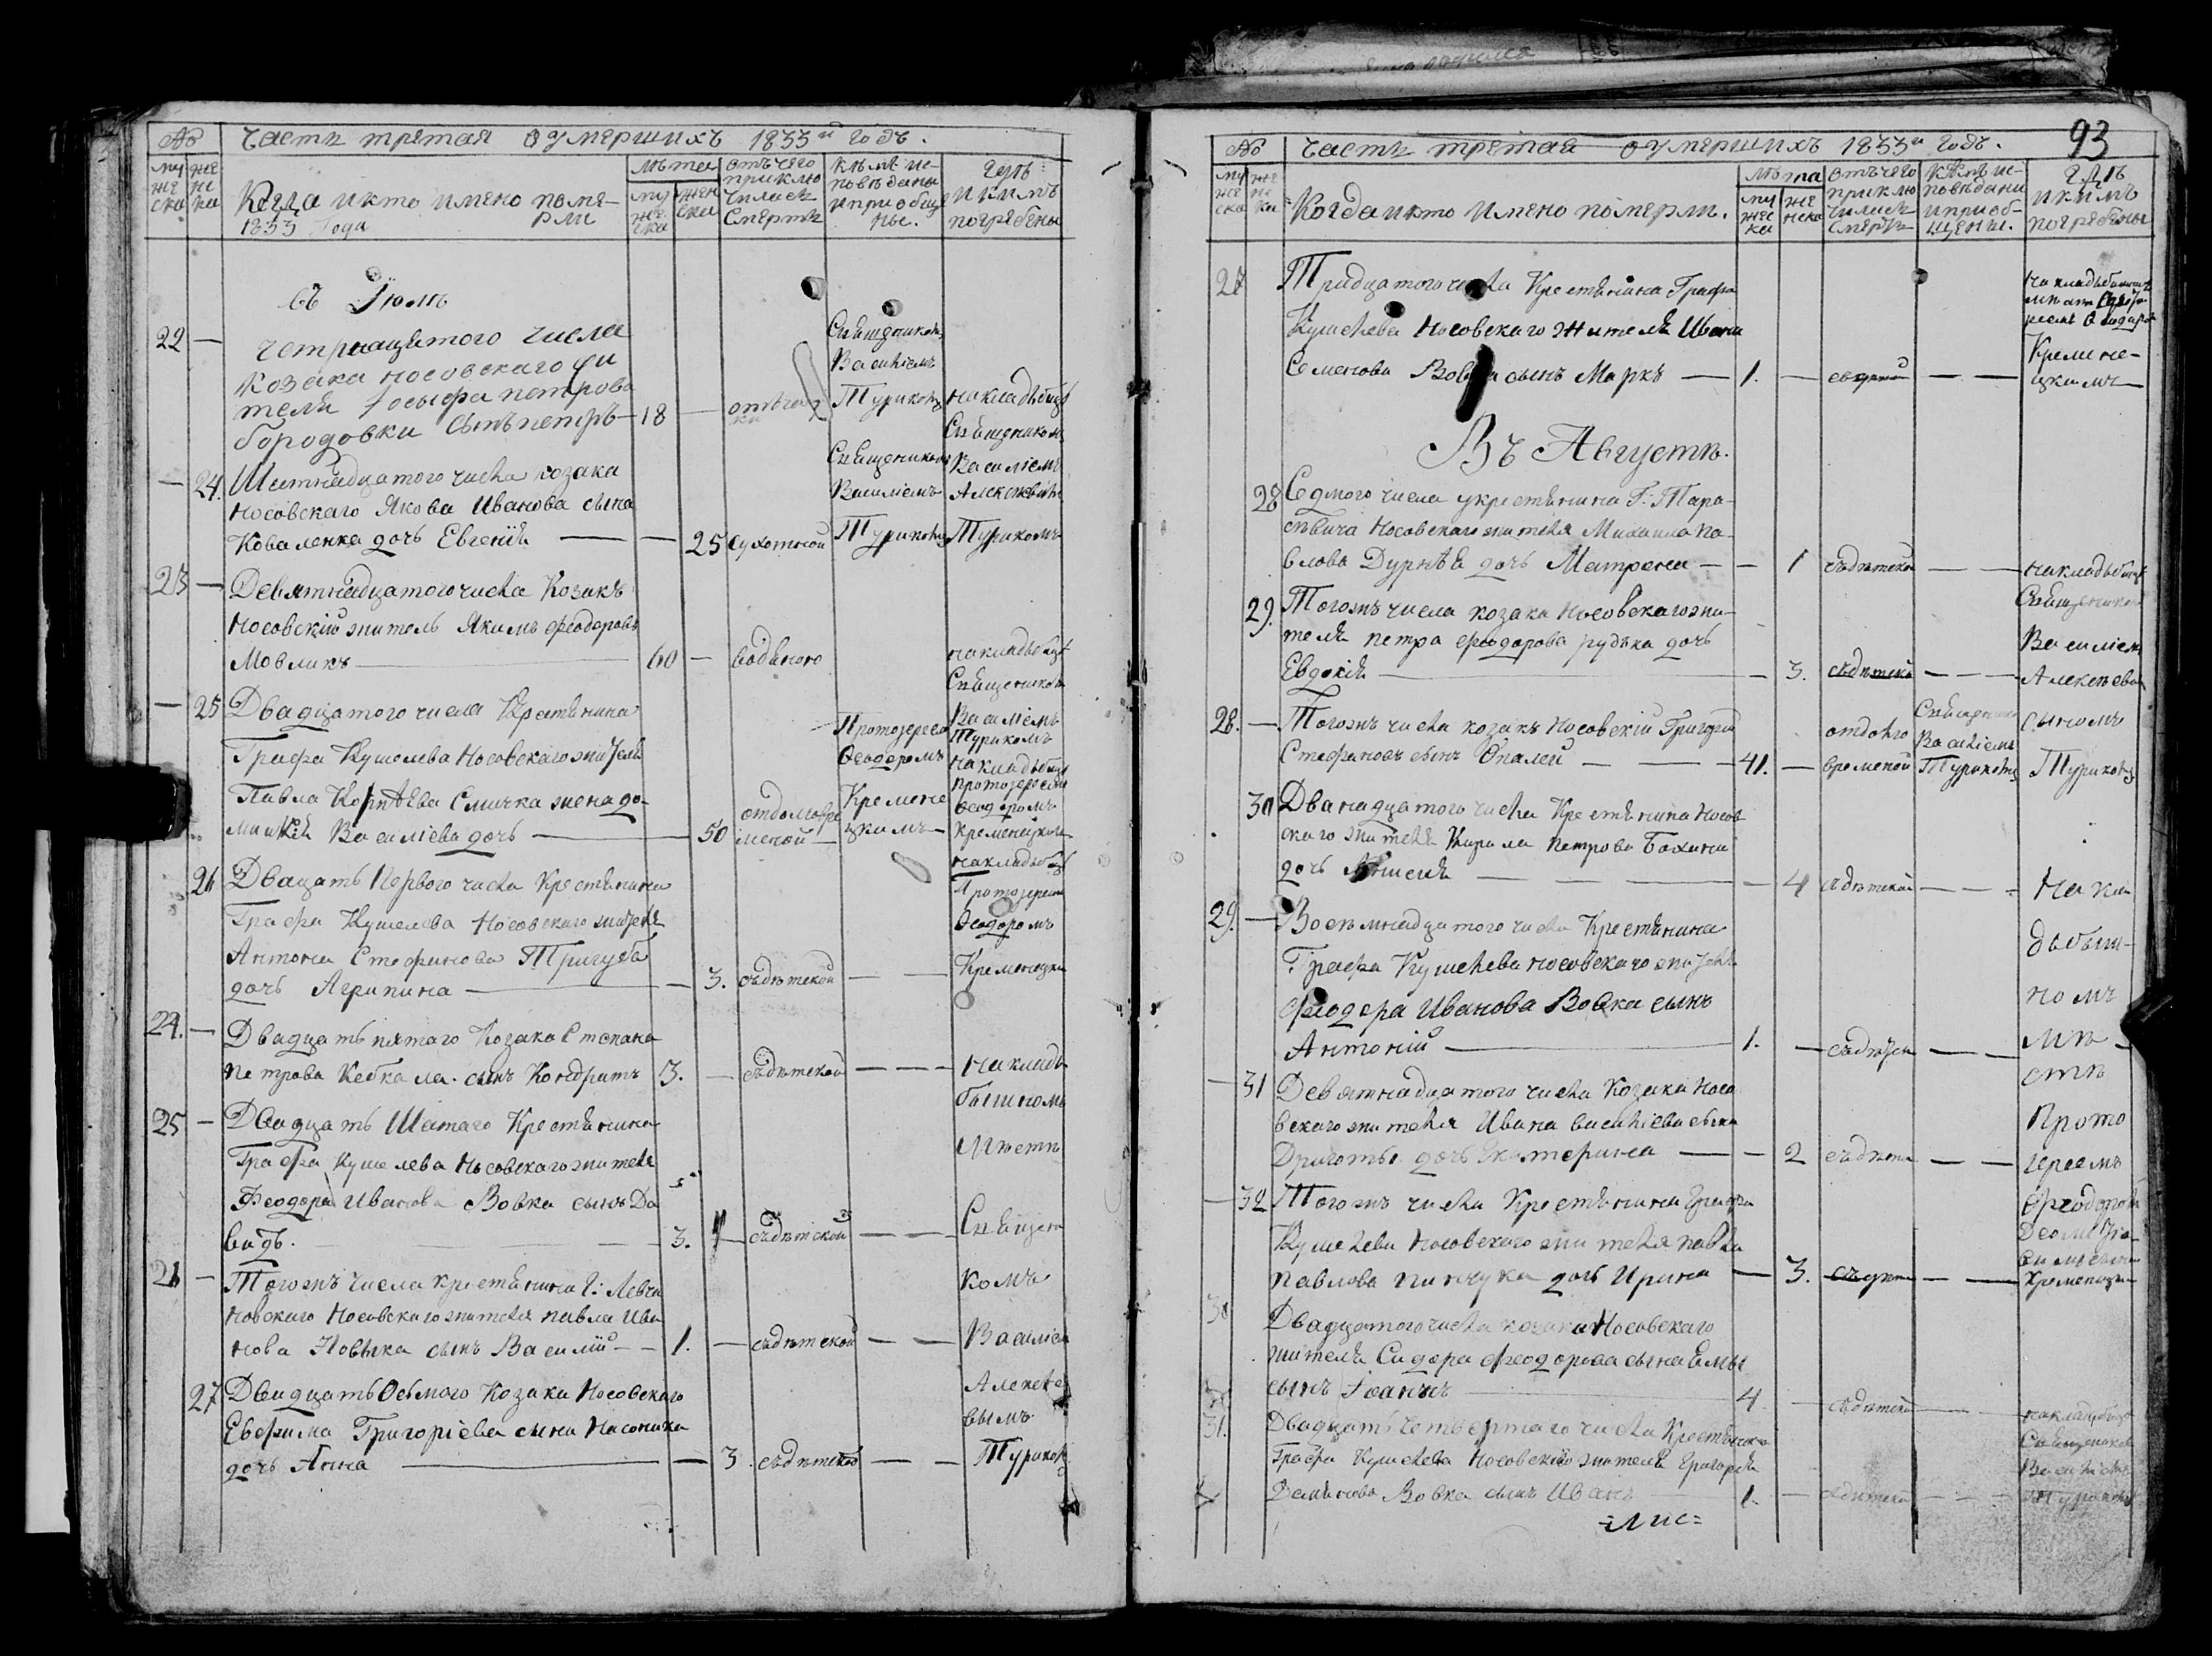 № Часть третая О умершихъ 1833й годъ.
му же ска
же не ка
Когда и кто имено помѣрли
1833 Года
лѣта
му же ска
жен ска
отъ чего приклю чилась Смерть
кѣмъ исповѣданы и приобще ны.
гдѣ и кимъ погребены
въ Июлѣ
22 — четрнацатого числа
козака носовскаго жи
теля Иосыфа петрова
бородовки сынъ петръ — 18 —
Священикомъ
Василіемъ
Туриком
на кладбищѣ
Священиком
Василіемъ
Алексеевым
Туриком
— 24. Шестнадцатого числа козака
Носовскаго Якова Иванова сына
Коваленка дочь Евгенія — — 25 Сухотной
Священиком
Василіемъ
Туриком
23 — Девятнадцатого числа Козакъ
Носовскій житель Якимъ Феодоровъ
Мовликъ — 60 — водяною
на кладбищѣ
Священиком
Василіемъ
Туриком
— 25 Двадцатого числа Крестянина
Графа Кушелева Носовскаго жителя
Павла Смичка жена до-
Василіева дочь — 50 отдолговре меной —
Протоіереем
Феодоромъ
Кремене
цкимъ
на кладбищѣ
протоіереем
Феодоромъ
кременицким
26 Двацать Первого числа Крестянина
Графа Кушелева Носовскаго жителя
Антона Стефанова Тригуба
дочь Агрипина — — 3. Съдѣтской — —
на кладбищѣ
Протоіереем
Феодоромъ
Кременецким
24. — Двадцать пятаго Козака Степана
Петрова Кебкала. сынъ Кондратъ 3. — Съдѣтской — — —
На кладь
бышномъ
Мѣстѣ
25 — Двадцать Шетаго Крестянина
Графа Кушелева Носовскаго жителя
Феодора Иванова Вовка сынъ Да
видъ. — — 3. — Съдѣтской — —
Священи
комъ
26 — Тогожъ числа крестянина Г: Левча
новскаго Носовскаго жителя павла Ива
нова Новыка сынъ Василій — — 1. — съдѣтской — —
Василіем
27 Двадцать Осьмого Козака Носовскаго
Евфима Григоріева сына Насоника
дочь Анна — — 3. съдѣтской — —
Алексѣе
вымъ
Турикомъ
93
№ Часть третая О умершихъ 1833й годъ.
му же ска
же не ка
Когда и кто имено померли.
лѣта
му жес ка
же нска
отъ чего приклю чилась Смерть
Кѣмъ исповѣдани и приоб щены.
гдѣ и кимъ погребены
27 Тридцатого числа Крестянина Графа
Кушелева Носовскаго Жителя Ивана
Семенова Вовка сынъ Маркъ — 1. — — —
Кремене-
цкимъ
Въ Августѣ.
28 Седмого числа у крестянина Г: Тара-
севича Носовскаго жителя Михаила Па-
влова Дурнѣя дочь Матрена — — 1 съдѣтской — —
на кладбищѣ
29. Тогожъ числа козака Носовскаго жи-
теля петра Феодорова рудька дочь
Евдокія — — 3. съдѣтской — — —
Священиком
Василіем
Алексѣевым
28. — Тогожъ числа козакъ Носовскій Григорій
Стефановъ сынъ Опалей — — 41. —
отдолго
временой
Священиком
Василіемъ
Туриком
сыномъ
Туриком
30 Дванадцатого числа Крестянина Носов
скаго жителя Кирила Петрова Бахина
дочь — — 4 съдѣтской — — —
На кла
29. — Восемнадцатого числа Крестянина
Графа Кушелева носовскаго жителя
Феодора Иванова Вовка сынъ
Антоній — 1. — — —
дьбыш-
номъ
мѣ-
стѣ
— 31 Девятнадцатого числа Козака Носо
вскаго жителя Ивана василіева сына
дочь Екатерина — — 2 съдѣтс — —
Прото
іереемъ
— 32 Тогожъ числа Крестянина Графа
Кушелева Носовскаго жителя павла
павлова пинчука дочь Ирина — 3. — —
Феодоромъ
Кременецким
30 Двадцатого числа козака Носовскаго
жителя Сидора Феодорова сына
сынъ Іоаннъ — 4 — съдѣтской —
31. Двадцать четвертаго числа Крестянина
Графа Кушелева Носовскаго жителя Григорія
Демянова Вовка сынъ Иванъ 1. — съдѣтской — —
на кладбищѣ
Священиком
Василіемъ
Туриком
=лис=